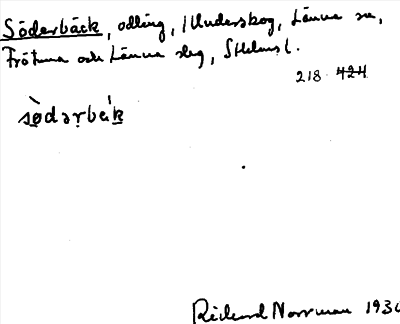 Söderbäck, odling, i Underskog, Länna sn,
Frötuna och Länna slg, Sthlms l.
218 424
södərbäk
Richard Norrman 1930